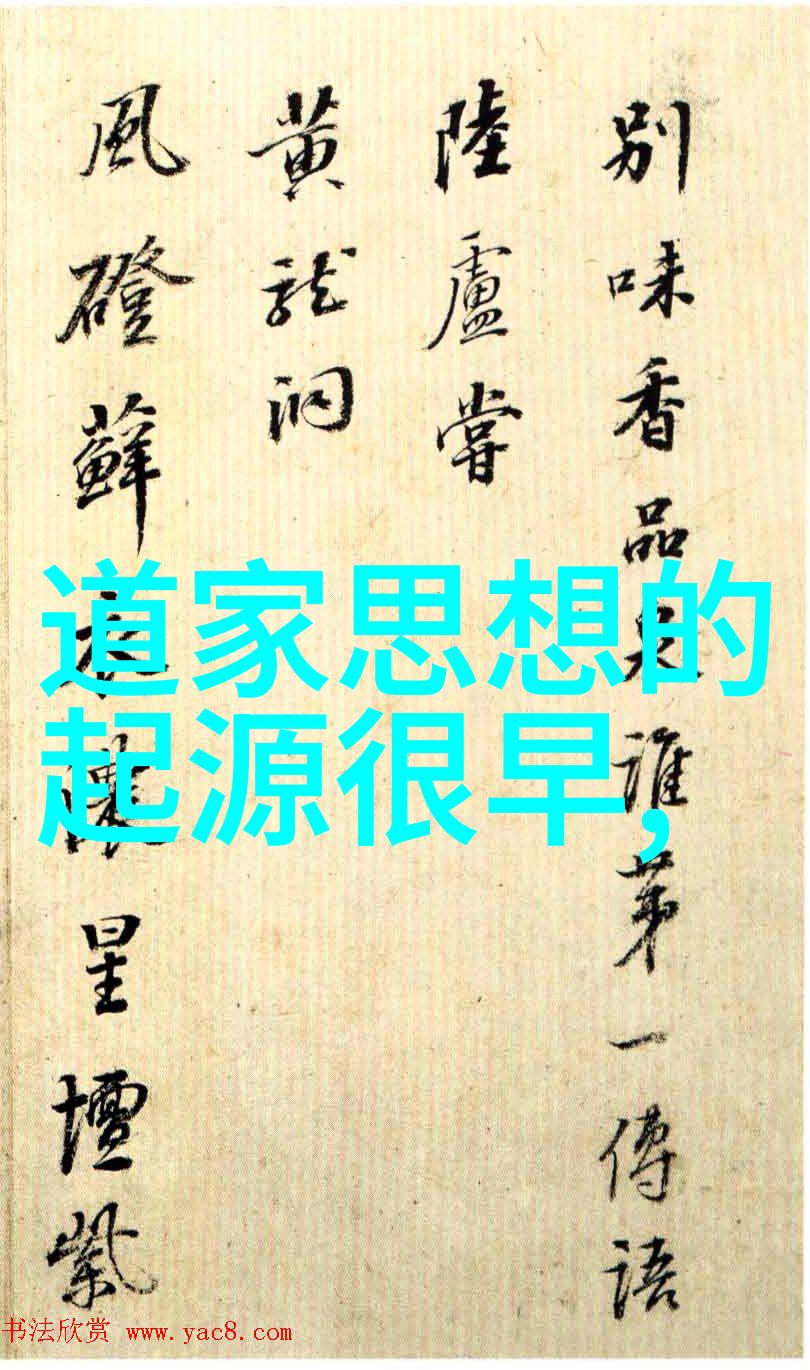 别味香品誰第一傳語
陸盧嘗
黄龍洞
風磴蘚衣星壇紫
道家思想的
起源很早,
书法欣赏 www.yac8.com